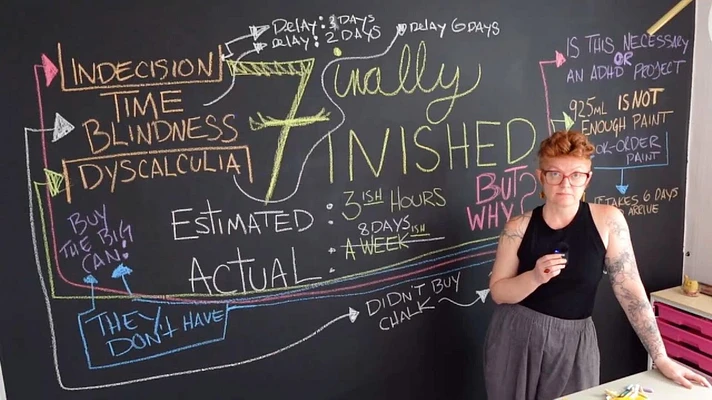 DELAY: DAYS
DELAY: 2 DAYS
DELAY 6 DAYS
INDECISION
TIME
BLINDNESS
DYSCALCULIA
Finally
FINISHED
ESTIMATED : 3ISH HOURS
ACTUAL : 8 DAYSISH
A WEEK
BUT
WHY?
BUY
THE BIG
CAN!
THEY
DON'T HAVE
DIDN'T BUY
CHALK
IS THIS NECESSARY
OR
AN ADHD PROJECT
925ml IS NOT
ENOUGH PAINT
OK-ORDER
PAINT
TAKES 6 DAYS
ARRIVE